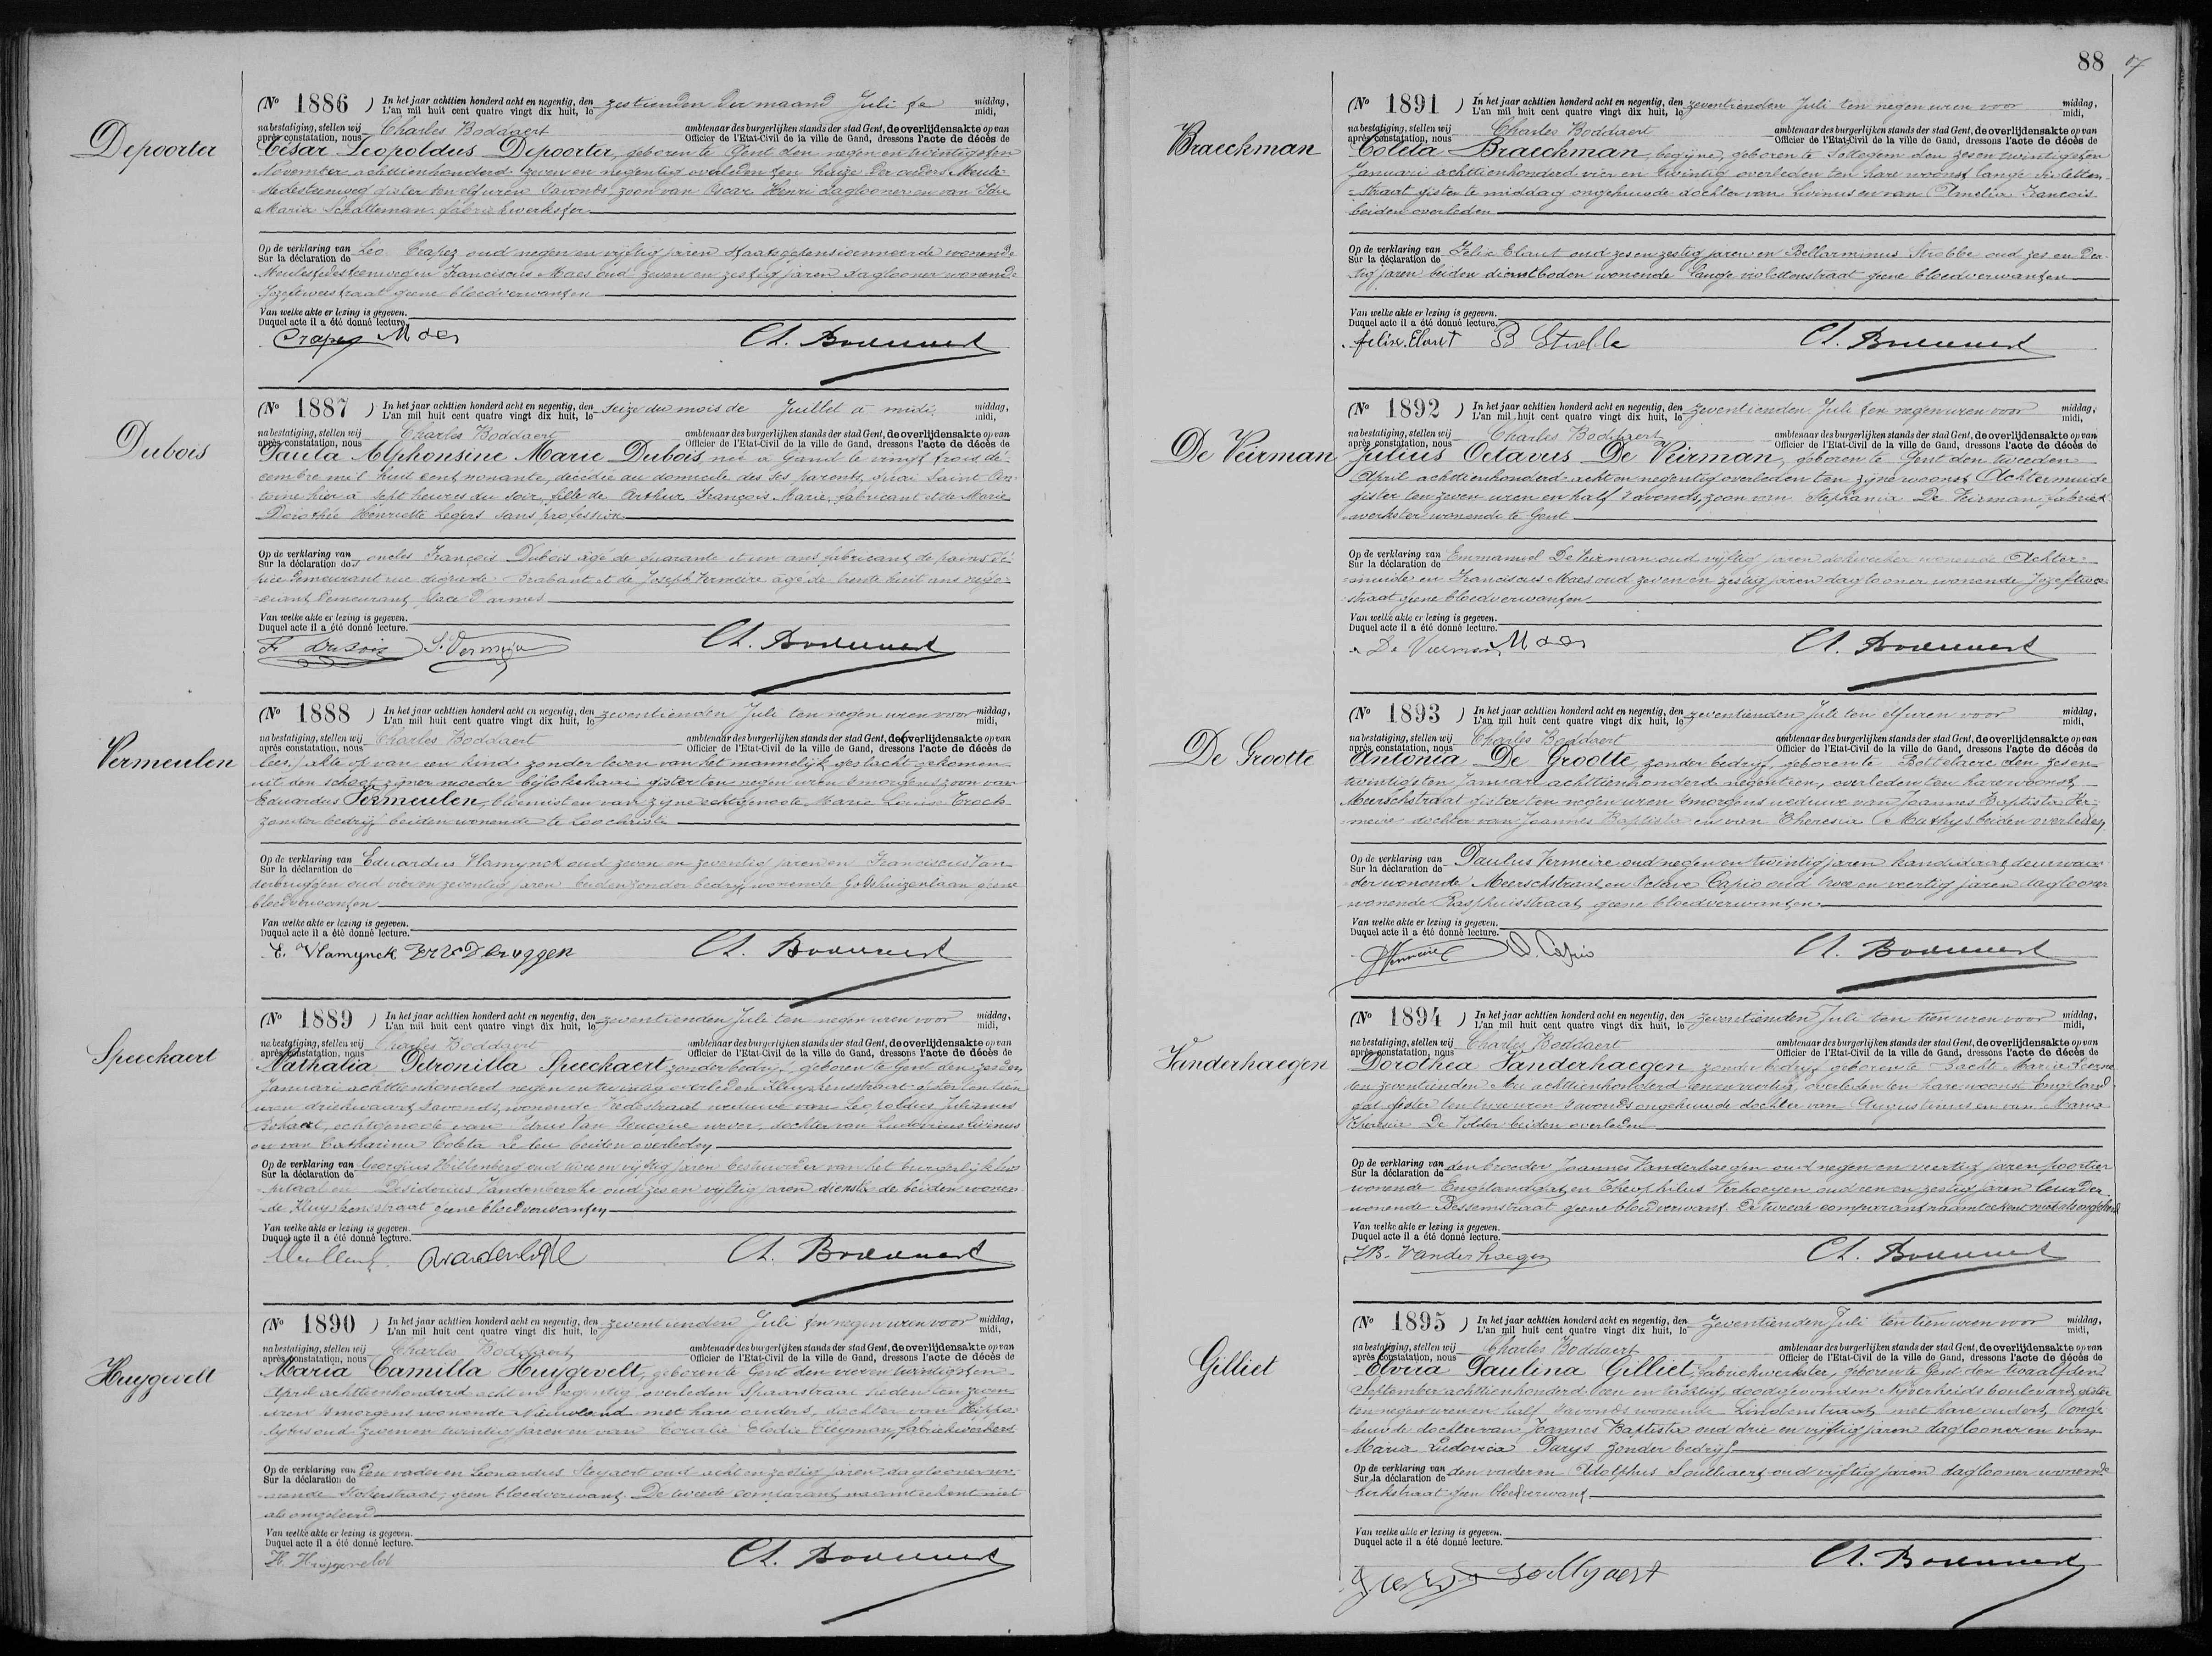 88
Depoorter
(No 1886 ) In het jaar achttien honderd acht en negentig, den zestienden der maand Juli te middag,
L'an mil huit cent quatre vingt dix huit, le midi,
na bestatiging, stellen wij Charles Boddaert ambtenaar des burgerlijken stands der stad Gent, de overlijdensakte op van
après constatation, nous Officier de l'Etat-Civil de la ville de Gand, dressons l'acte de décès de
César Leopoldus Depoorter, geboren te Gent den negen en twintigsten
November achttienhonderd zeven en negentig overleden ten huize der ouders Meule-
stedesteenweg gister ten elf uren s'avonds, zoon van Oscar Henri daglooner en van
Maria Schatteman fabriekwerkster
Op de verklaring van Leo Crapez oud negen en vijftig jaren staatsgepensionneerde wonende
Sur la déclaration de
Meulestedesteenweg en Franciscus Maes oud zeven en zestig jaren daglooner wonende
straat geene bloedverwanten
Van welke akte er lezing is gegeven.
Duquel acte il a été donné lecture.
Crapez Maes Ch. Boddaert
Dubois
(No 1887 ) In het jaar achttien honderd acht en negentig, den seize du mois de Juillet à midi middag,
L'an mil huit cent quatre vingt dix huit, le midi,
na bestatiging, stellen wij Charles Boddaert ambtenaar des burgerlijken stands der stad Gent, de overlijdensakte op van
après constatation, nous Officier de l'Etat-Civil de la ville de Gand, dressons l'acte de décès de
Paula Alphonsine Marie Dubois, née à Gand le vingt trois dé-
cembre mil huit cent nonante, décédée au domicile des ses parents, quai Saint An-
toine hier à sept heures du soir, fille de Arthur François Marie, fabricant et de Marie
Dorothée Henriette Legers sans profession
Op de verklaring van oncles François Dubois âgé de quarante et un ans fabricant de pains d'é-
Sur la déclaration de
pice demeurant rue digue de Brabant et de Joseph Vermeire âgé de trente huit ans négo-
ciant demeurant place d'armes
Van welke akte er lezing is gegeven.
Duquel acte il a été donné lecture.
F. Dubois J. Vermeire Ch. Boddaert
Vermeulen
(No 1888 ) In het jaar achttien honderd acht en negentig, den zeventienden Juli ten negen uren voor middag,
L'an mil huit cent quatre vingt dix huit, le midi,
na bestatiging, stellen wij Charles Boddaert ambtenaar des burgerlijken stands der stad Gent, de overlijdensakte op van
après constatation, nous Officier de l'Etat-Civil de la ville de Gand, dressons l'acte de décès de
akte op van een kind zonder leven van het mannelijk geslacht gekomen
uit den schoot zijner moeder Bijlokekaai gister ten negen uren s'morgens zoon van
Eduardus Vermeulen, bloemist en van zijne echtgenoote Marie Louise
zonder bedrijf beiden wonende te Loochristi
Op de verklaring van Eduardus Vlamynck oud zeven en zeventig jaren en Franciscus Van
Sur la déclaration de
derbruggen oud vier en zeventig jaren beiden zonder bedrijf wonende Godshuizenlaan geene
bloedverwanten
Van welke akte er lezing is gegeven.
Duquel acte il a été donné lecture.
E. Vlamynck Ch. Boddaert
Speeckaert
(No 1889 ) In het jaar achttien honderd acht en negentig, den zeventienden Juli ten negen uren voor middag,
L'an mil huit cent quatre vingt dix huit, le midi,
na bestatiging, stellen wij Charles Boddaert ambtenaar des burgerlijken stands der stad Gent, de overlijdensakte op van
après constatation, nous Officier de l'Etat-Civil de la ville de Gand, dressons l'acte de décès de
Nathalia Petronilla Speeckaert zonder bedrijf geboren te Gent den zesden
Januari achttienhonderd negen en twintig overleden Kluyskensstraat gister ten tien
uren driekwaart s'avonds, wonende Vredestraat weduwe van Leopoldus Julianus
echtgenoote van Petrus Van wever, dochter van Ludovicus Livinus
en van Catharina Coleta beiden overleden
Op de verklaring van Georgius Hillenberg oud twee en vijftig jaren bestuurder van het burgerlijk hos-
Sur la déclaration de
pitaal en Desiderius Vandenberghe oud zes en vijftig jaren dienstbode beiden wonen-
de Kluyskensstraat geene bloedverwanten
Van welke akte er lezing is gegeven.
Duquel acte il a été donné lecture.
Ch. Boddaert
Huygevelt
(No 1890 ) In het jaar achttien honderd acht en negentig, den zeventienden Juli ten negen uren voor middag,
L'an mil huit cent quatre vingt dix huit, le midi,
na bestatiging, stellen wij Charles Boddaert ambtenaar des burgerlijken stands der stad Gent, de overlijdensakte op van
après constatation, nous Officier de l'Etat-Civil de la ville de Gand, dressons l'acte de décès de
Maria Camilla Huygevelt, geboren te Gent den vier en twintigsten
April achttienhonderd acht en negentig overleden Spaarstraat heden ten zeven
uren s'morgens wonende Nieuwland met hare ouders, dochter van Hippo-
lytus oud zeven en twintig jaren en van Coralie Elodie Cleyman fabriekwerkers
Op de verklaring van den vader en Leonardus Steyaert oud acht en zestig jaren daglooner wo-
Sur la déclaration de
nende Stokerstraat, geen bloedverwant. De tweede comparant naamteekent niet
als ongeleerd
Van welke akte er lezing is gegeven.
Duquel acte il a été donné lecture.
H. Huygevelt Ch. Boddaert
Braeckman
(No 1891 ) In het jaar achttien honderd acht en negentig, den zeventienden Juli ten negen uren voor middag,
L'an mil huit cent quatre vingt dix huit, le midi,
na bestatiging, stellen wij Charles Boddaert ambtenaar des burgerlijken stands der stad Gent, de overlijdensakte op van
après constatation, nous Officier de l'Etat-Civil de la ville de Gand, dressons l'acte de décès de
Coleta Braeckman, begijne, geboren te Sottegem den zes en twintigsten
Januari achttienhonderd vier en twintig overleden ten hare woonst lange violetten-
straat gister te middag ongehuwde dochter van Livinus en van Amelia Francois
beiden overleden
Op de verklaring van Felix Elaut oud zes en zestig jaren en Bellarminus Strobbe oud zes en der-
Sur la déclaration de
tig jaren beiden dienstboden wonende lange violettenstraat geene bloedverwanten
Van welke akte er lezing is gegeven.
Duquel acte il a été donné lecture.
felix Elaut B Strobbe Ch. Boddaert
De Veirman
(No 1892 ) In het jaar achttien honderd acht en negentig, den zeventienden Juli ten negen uren voor middag,
L'an mil huit cent quatre vingt dix huit, le midi,
na bestatiging, stellen wij Charles Boddaert ambtenaar des burgerlijken stands der stad Gent, de overlijdensakte op van
après constatation, nous Officier de l'Etat-Civil de la ville de Gand, dressons l'acte de décès de
Julius Octavus De Veirman, geboren te Gent den tweeden
April achttienhonderd acht en negentig overleden ten zijne woonst Achtermuide
gister ten zeven uren en half s'avonds, zoon van Stephania De Veirman, fabriek-
werkster wonende te Gent
Op de verklaring van Emmanuel De Veirman oud vijftig jaren dokwerker wonende Achter-
Sur la déclaration de
muide en Franciscus Maes oud zeven en zestig jaren daglooner wonende
straat geene bloedverwanten
Van welke akte er lezing is gegeven.
Duquel acte il a été donné lecture.
De Veirman Maes Ch. Boddaert
De Grootte
(No 1893 ) In het jaar achttien honderd acht en negentig, den zeventienden Juli ten elf uren voor middag,
L'an mil huit cent quatre vingt dix huit, le midi,
na bestatiging, stellen wij Charles Boddaert ambtenaar des burgerlijken stands der stad Gent, de overlijdensakte op van
après constatation, nous Officier de l'Etat-Civil de la ville de Gand, dressons l'acte de décès de
Antonia De Grootte, zonder bedrijf, geboren te Bottelaere den zes en
twintigsten Januari achttienhonderd negentien, overleden ten hare woonst,
Meerschstraat gister ten negen uren s'morgens weduwe van Joannes Baptista Ver-
meire dochter van Joannes Baptista en van Theresia Mathys beiden overleden
Op de verklaring van Paulus Vermeire oud negen en twintig jaren kandidaat deurwaar-
Sur la déclaration de
der wonende Meerschstraat en Octave Capio oud twee en veertig jaren daglooner
wonende Rasphuisstraat geene bloedverwanten
Van welke akte er lezing is gegeven.
Duquel acte il a été donné lecture.
PVermeire O. Capio Ch. Boddaert
Vanderhaegen
(No 1894 ) In het jaar achttien honderd acht en negentig, den zeventienden Juli ten tien uren voor middag,
L'an mil huit cent quatre vingt dix huit, le midi,
na bestatiging, stellen wij Charles Boddaert ambtenaar des burgerlijken stands der stad Gent, de overlijdensakte op van
après constatation, nous Officier de l'Etat-Civil de la ville de Gand, dressons l'acte de décès de
Dorothea Vanderhaegen zonder bedrijf geboren te Sacht Maria Leerne
den zeventienden Mei achttienhonderd een en veertig, overleden ten hare woonst Engeland-
gat gister ten twee uren s'avonds ongehuwde dochter van Augustinus en van Maria
Theresia De Volder beiden overleden
Op de verklaring van den broeder Joannes Vanderhaegen oud negen en veertig jaren poortier
Sur la déclaration de
wonende Engelandgat en Theophilus Verhoeyen oud een en zestig jaren leurder
wonende Bessemstraat geene bloedverwant. De tweede comparant naamteekent niet als ongeleerd
Van welke akte er lezing is gegeven.
Duquel acte il a été donné lecture.
JB. Vanderhaegen Ch. Boddaert
Gilliet
(No 1895 ) In het jaar achttien honderd acht en negentig, den zeventienden Juli ten tien uren voor middag,
L'an mil huit cent quatre vingt dix huit, le midi,
na bestatiging, stellen wij Charles Boddaert ambtenaar des burgerlijken stands der stad Gent, de overlijdensakte op van
après constatation, nous Officier de l'Etat-Civil de la ville de Gand, dressons l'acte de décès de
Elvira Paulina Gilliet, fabriekwerkster, geboren te Gent den twaalfden
September achttienhonderd een en tachtig, doodgevonden Nijverheidsboulevard, gister
ten negen uren en half s'avonds wonende Lindenstraat met hare ouders, onge-
huwde dochter van Joannes Baptista oud drie en vijftig jaren daglooner en van
Maria Ludovica Parys zonder bedrijf
Op de verklaring van den vader en Adolphus Soulliaert oud vijftig jaren daglooner wonende
Sur la déclaration de
Kerkstraat geen bloedverwant
Van welke akte er lezing is gegeven.
Duquel acte il a été donné lecture.
Ch. Boddaert